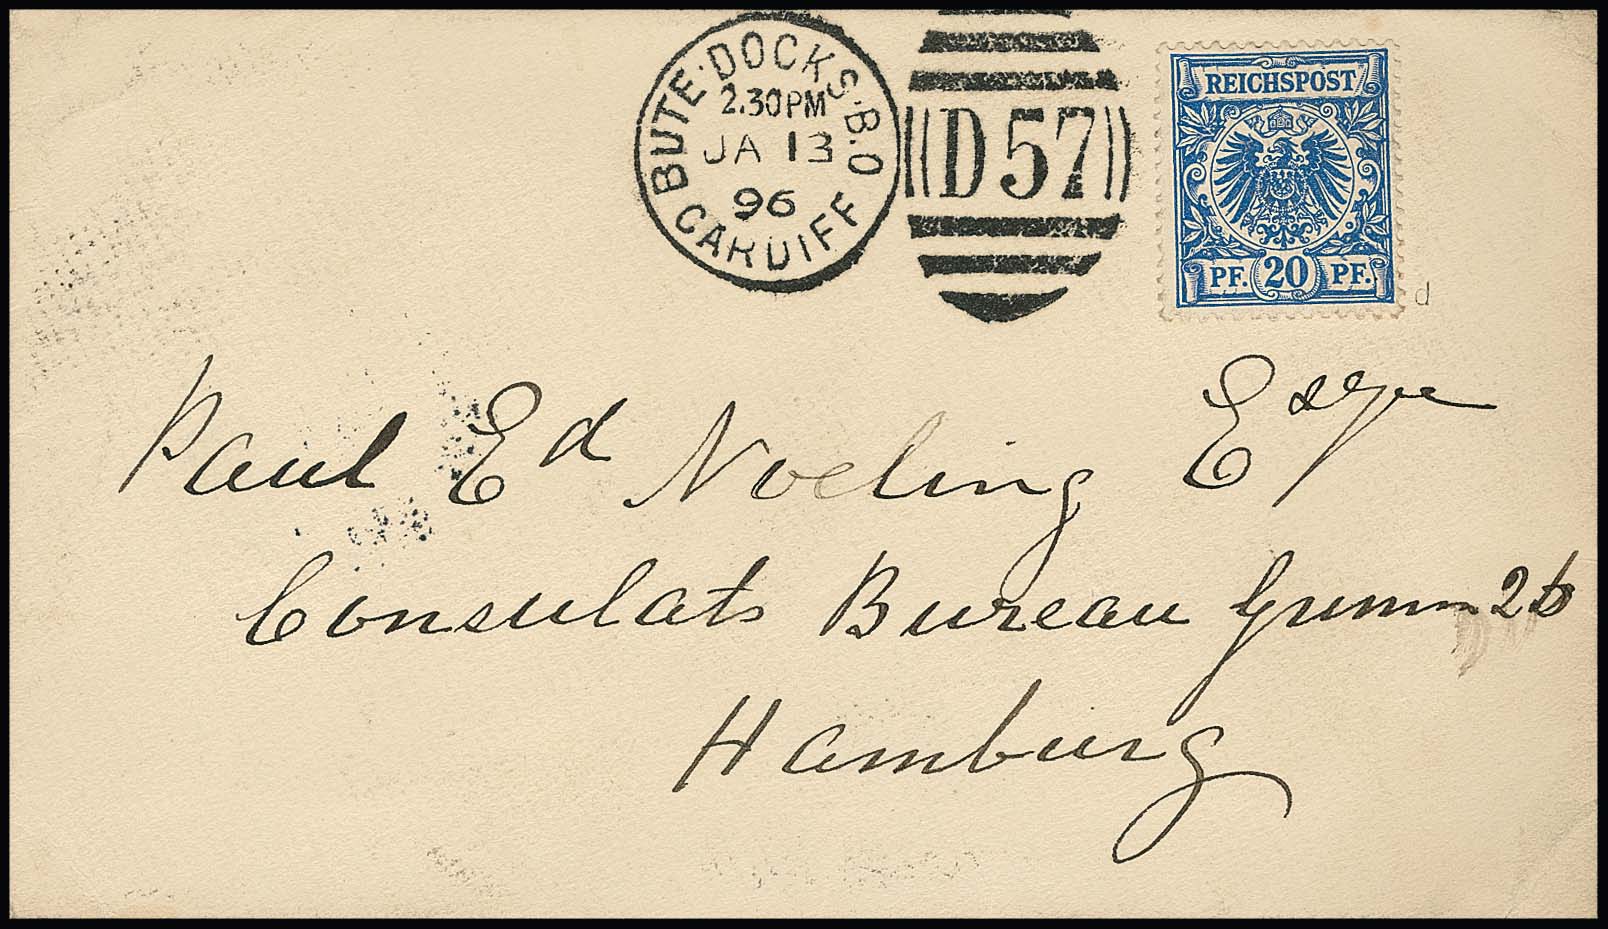 BUTE·DOCKS·B.O
2.30PM
JA 13
96
CARDIFF
D57
REICHSPOST
PF. 20 PF.
d
Paul Ed Noeling Esqre
Consulats Bureau Grimm 26
Hamburg